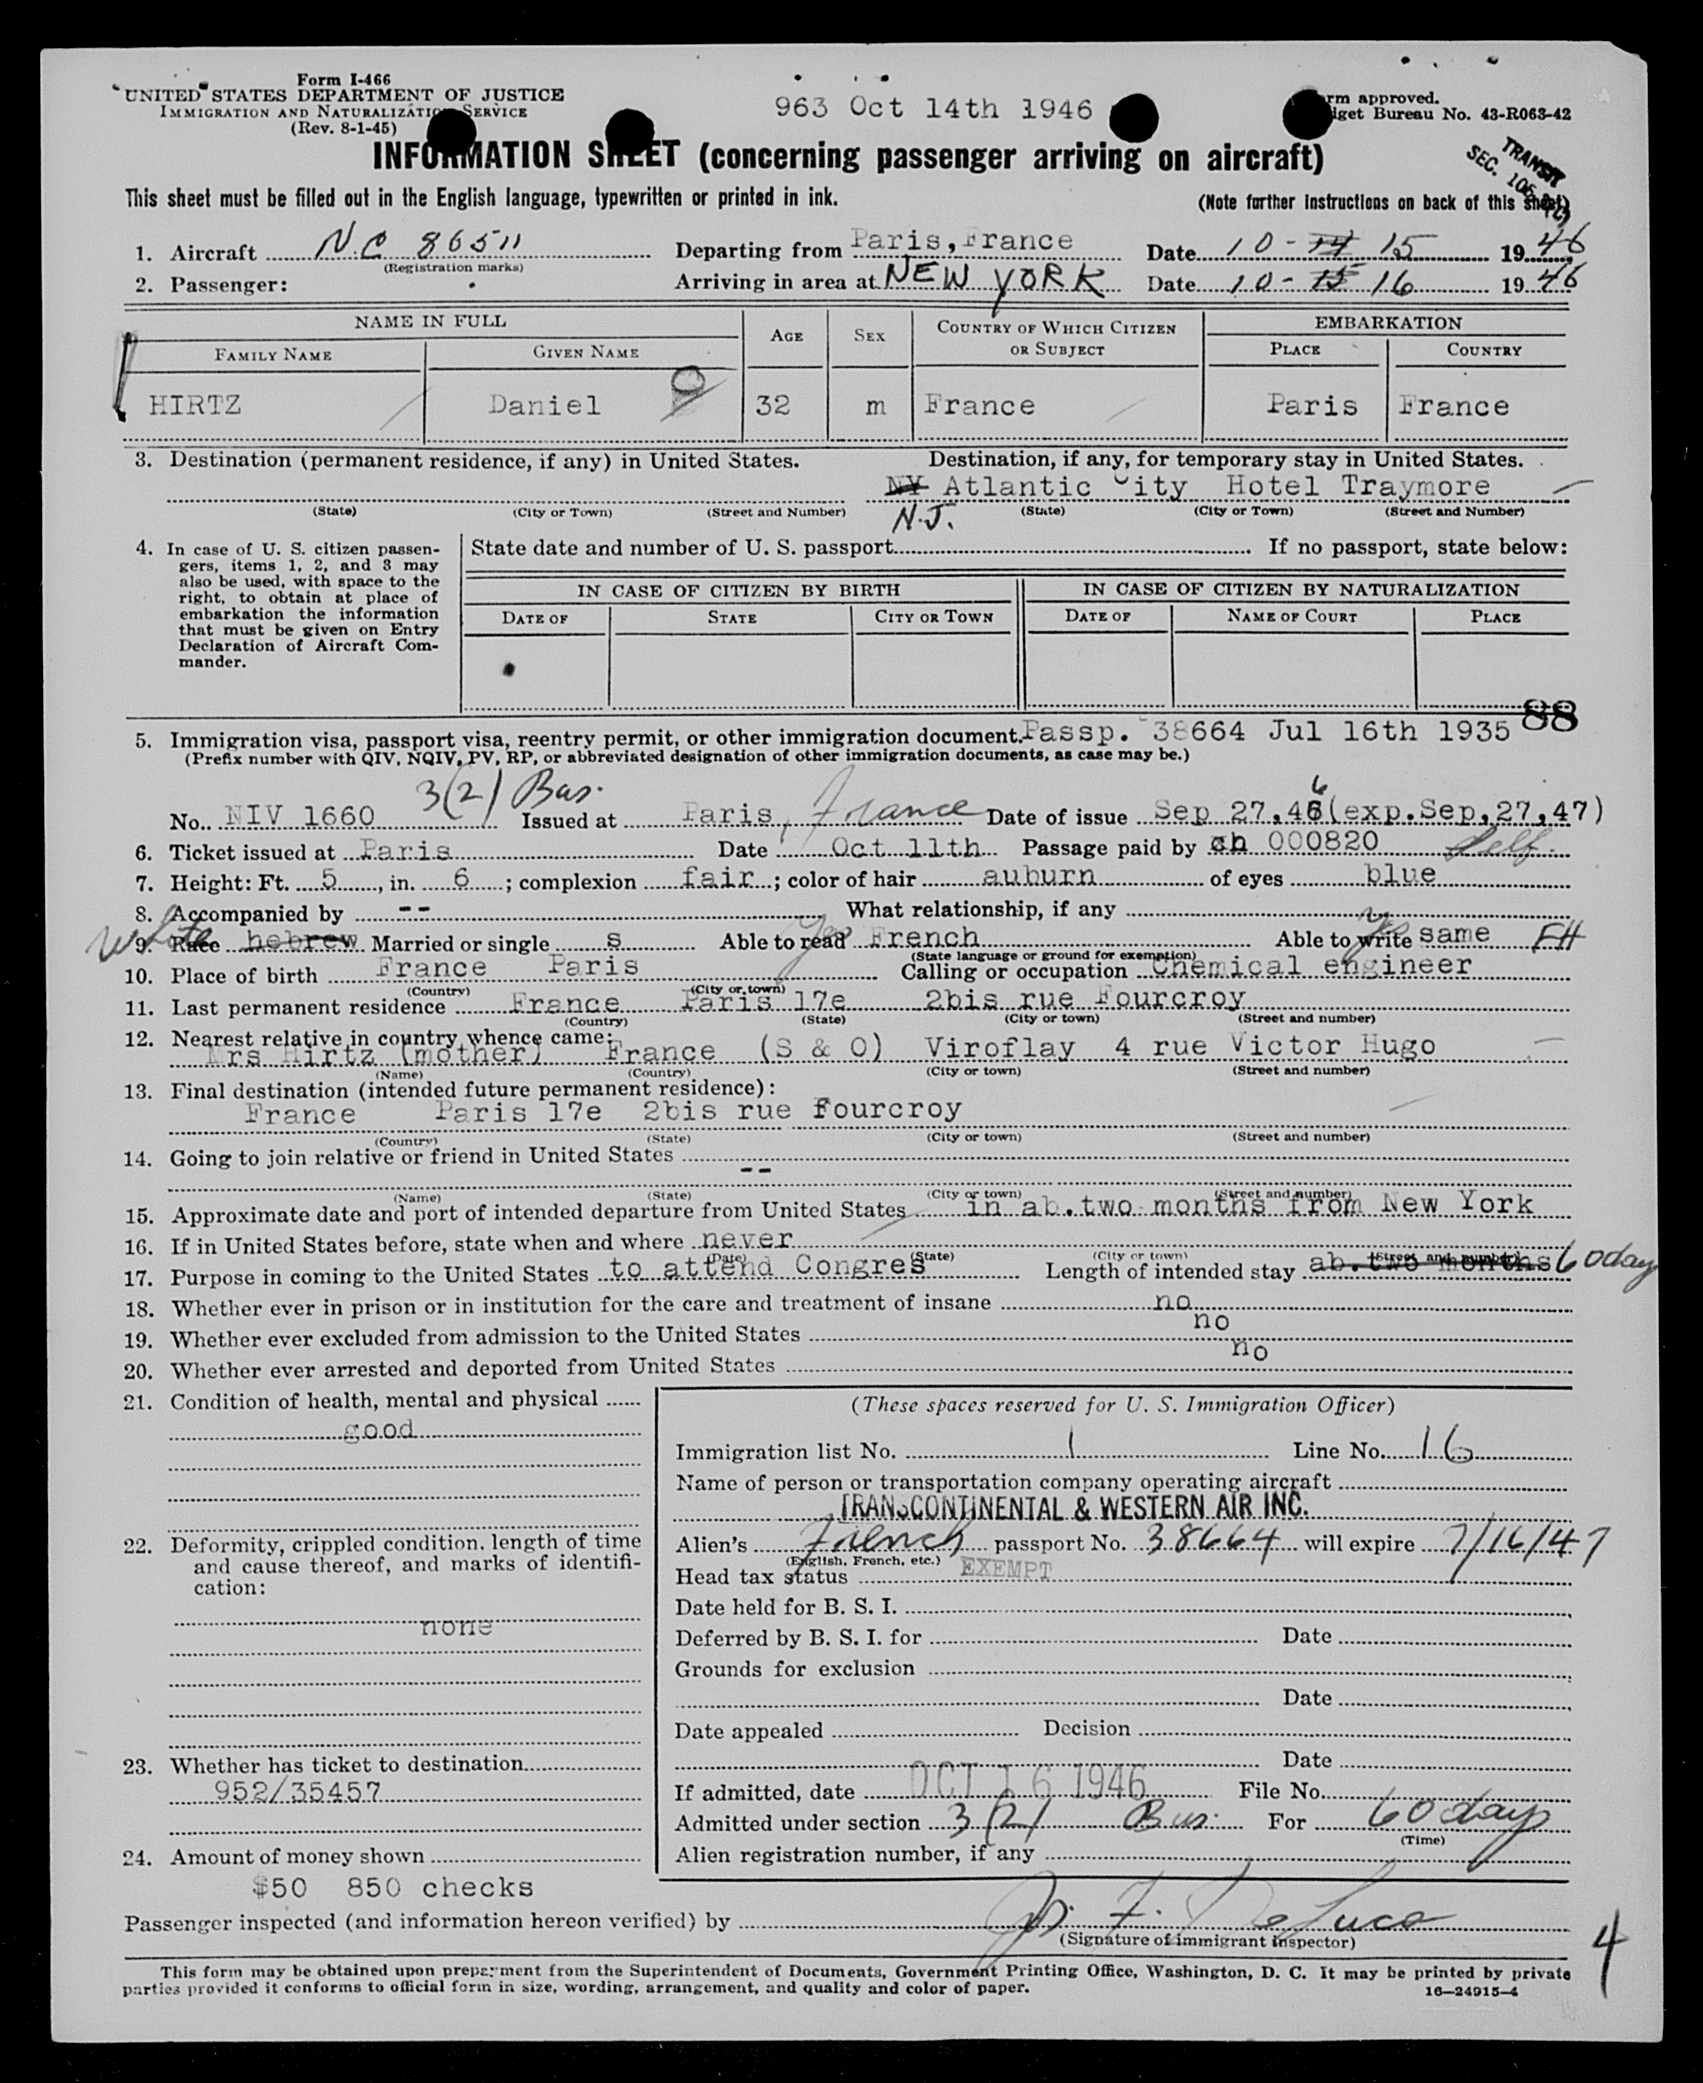 Form I-466
UNITED STATES DEPARTMENT OF JUSTICE
IMMIGRATION AND NATURALIZATION SERVICE
(Rev. 8-1-45)
963 Oct 14th 1946
rm approved.
dget Bureau No. 43-R063-42
INFORMATION SHEET (concerning passenger arriving on aircraft)
TRANSIT
SEC.
This sheet must be filled out in the English language, typewritten or printed in ink.
(Note further instructions on back of this sheet)
1. Aircraft N.C 86511 Departing from Paris, France Date 10-14 15 1946
(Registration marks)
2. Passenger: Arriving in area at NEW YORK Date 10-15 16 1946
NAME IN FULL AGE SEX COUNTRY OF WHICH CITIZEN OR SUBJECT EMBARKATION
FAMILY NAME GIVEN NAME PLACE COUNTRY
HIRTZ Daniel 32 m France Paris France
3. Destination (permanent residence, if any) in United States. Destination, if any, for temporary stay in United States.
NY Atlantic City Hotel Traymore
N.J.
(State) (City or Town) (Street and Number) (State) (City or Town) (Street and Number)
4. In case of U. S. citizen passen-
gers, items 1, 2, and 3 may
also be used, with space to the
right, to obtain at place of
embarkation the information
that must be given on Entry
Declaration of Aircraft Com-
mander.
State date and number of U. S. passport If no passport, state below:
IN CASE OF CITIZEN BY BIRTH IN CASE OF CITIZEN BY NATURALIZATION
DATE OF STATE CITY OR TOWN DATE OF NAME OF COURT PLACE
88
5. Immigration visa, passport visa, reentry permit, or other immigration document. Passp. 38664 Jul 16th 1935
(Prefix number with QIV, NQIV, PV, RP, or abbreviated designation of other immigration documents, as case may be.)
3(2) Bus.
No. NIV 1660 Issued at Paris, France Date of issue Sep 27.46 (exp.Sep.27.47)
6. Ticket issued at Paris Date Oct 11th Passage paid by ch 000820 Self.
7. Height: Ft. 5, in. 6; complexion fair; color of hair auburn of eyes blue
8. Accompanied by -- What relationship, if any
White Yes Yes
9. Race hebrew Married or single s Able to read French Able to write same FH
(State language or ground for exemption)
10. Place of birth France Paris Calling or occupation Chemical engineer
(Country) (City or town)
11. Last permanent residence France Paris 17e 2bis rue Fourcroy
(Country) (State) (City or town) (Street and number)
12. Nearest relative in country whence came:
Mrs Hirtz (mother) France (S & O) Viroflay 4 rue Victor Hugo
(Name) (Country) (City or town) (Street and number)
13. Final destination (intended future permanent residence):
France Paris 17e 2bis rue Fourcroy
(Country) (State) (City or town) (Street and number)
14. Going to join relative or friend in United States
--
(Name) (State) (City or town) (Street and number)
15. Approximate date and port of intended departure from United States in ab.two months from New York
16. If in United States before, state when and where never
(Date) (State) (City or town) (Street and number)
17. Purpose in coming to the United States to attend Congres Length of intended stay ab.two months 60 days
18. Whether ever in prison or in institution for the care and treatment of insane no
19. Whether ever excluded from admission to the United States no
20. Whether ever arrested and deported from United States no
21. Condition of health, mental and physical
good
22. Deformity, crippled condition. length of time
and cause thereof, and marks of identifi-
cation:
none
23. Whether has ticket to destination
952/35457
24. Amount of money shown
$50 850 checks
(These spaces reserved for U. S. Immigration Officer)
Immigration list No. 1 Line No. 16
Name of person or transportation company operating aircraft
TRANSCONTINENTAL & WESTERN AIR INC.
Alien's French passport No. 38664 will expire 7/16/47
(English, French, etc.)
Head tax status EXEMPT
Date held for B. S. I.
Deferred by B. S. I. for Date
Grounds for exclusion
Date
Date appealed Decision
Date
If admitted, date OCT 16 1946 File No.
Admitted under section 3(2) Bus. For 60 days
(Time)
Alien registration number, if any
Passenger inspected (and information hereon verified) by
(Signature of immigrant inspector)
4
This form may be obtained upon prepayment from the Superintendent of Documents, Government Printing Office, Washington, D. C. It may be printed by private
parties provided it conforms to official form in size, wording, arrangement, and quality and color of paper.
16—24915-4